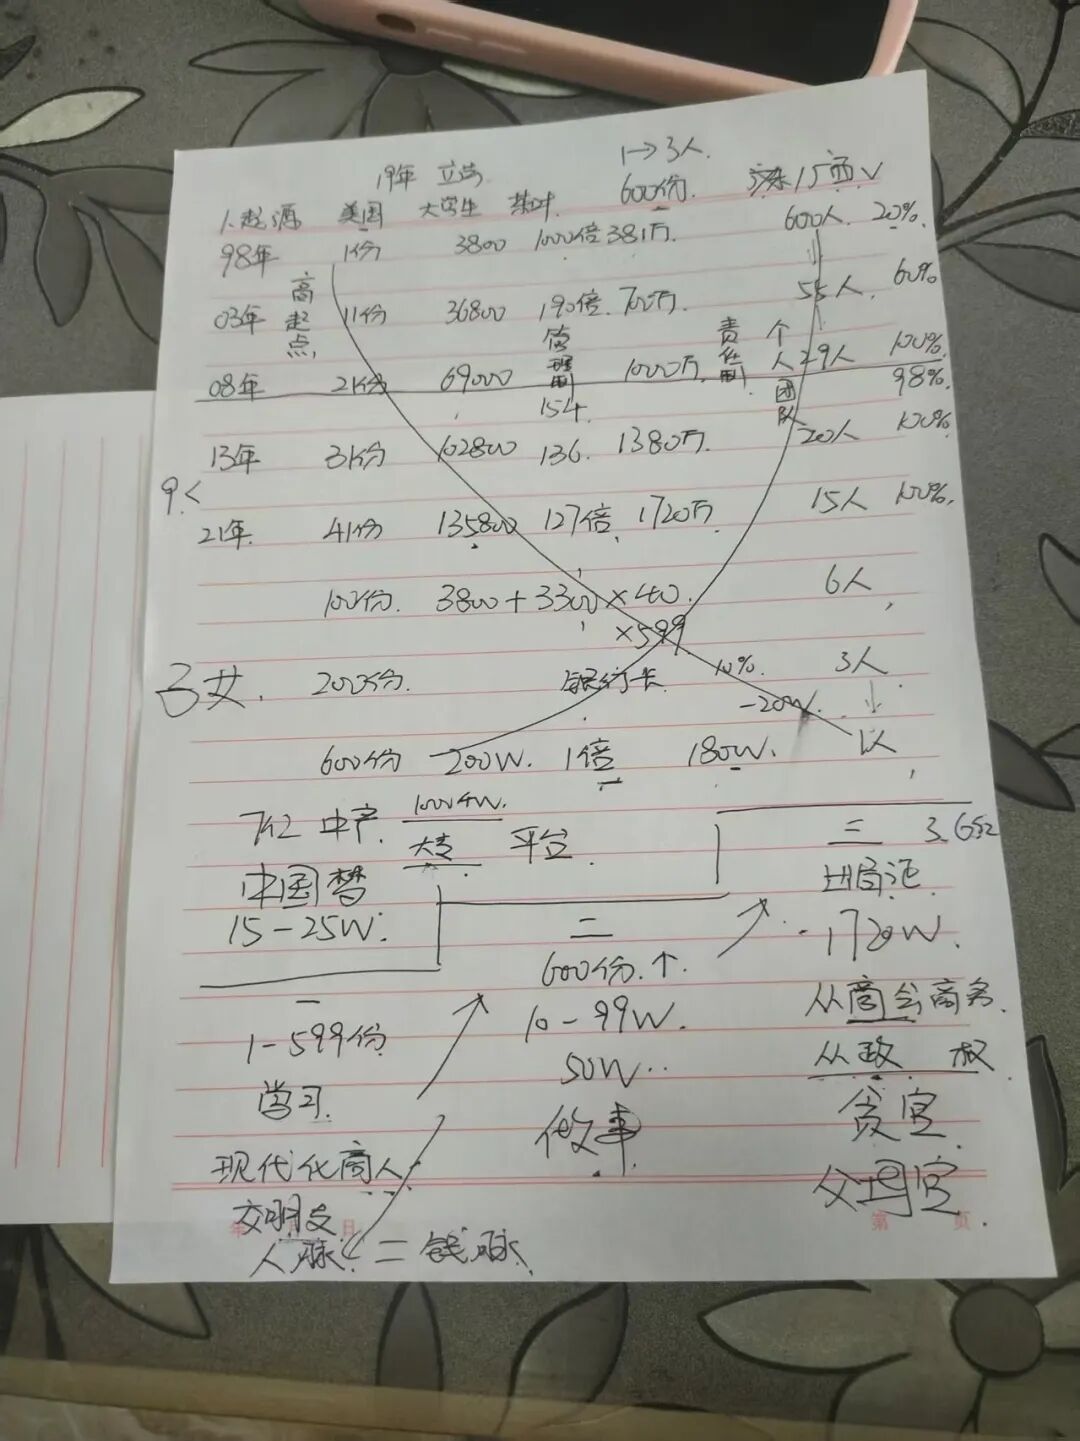 1→3人.
19年 立法
600份. 广东广西√
1.起源 美国 大学生
98年 1份 3800 1000倍 381万. 600人. 20%
高起点
03年 11份 36800 190倍. 700万. 55人. 60%
管理制 责任制 个人团队
08年 21份 69000 1000万. 29人 100%.
154. 98%.
13年 31份 102800 136. 1380万. 20人 100%.
9<
21年. 41份 135800 127倍. 1720万 15人 100%.
100份. 3800+3300×40. 6人.
×599
子女. 200份. 银行卡 10% 3人
-20W.
600份 -200W. 1倍 180W. 1人.
中产. 平台.
大专
中国梦
15-25W.
二
一 600份.↑ -1720W.
1-599份 10-99W. 从商会商务.
学习. 50W.. 从政 权
做事 贪官.
现代化商人. 父母官.
人脉 = 钱脉.
年 月 日 第 页